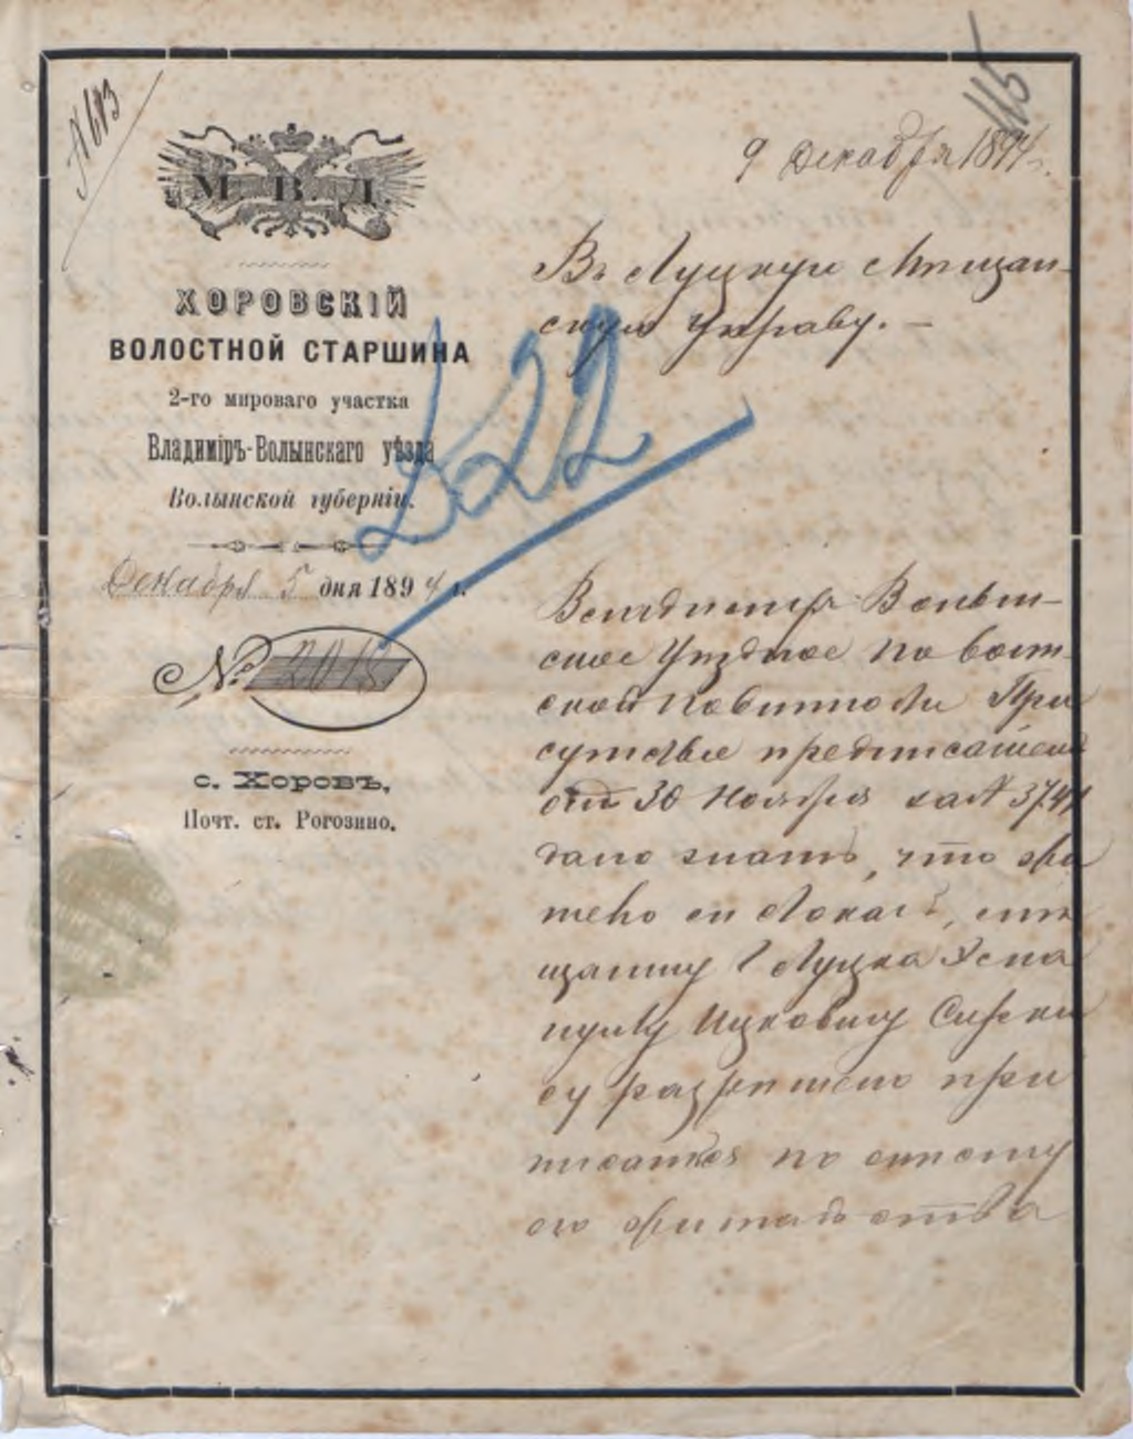 115
№ 613
М. В. Д.
ХОРОВСКІЙ
ВОЛОСТНОЙ СТАРШИНА
2-го мироваго участка
Владиміръ-Волынскаго уѣзда
Волынской губерніи.
Декабря 5 дня 1894 г.
№ 2015
с. Хоровъ,
Почт. ст. Рогозино.
522
9 Декабря 1894 г.
Въ Луцкую Мѣщан-
скую Управу. —
Владимиръ-Волын-
ское Уѣздное по воин-
ской повинности При
сутствіе предписаніемъ
отъ 30 Ноября за № 3741
дало знать, что жи
телю м Локачъ, мѣ
щанину г Луцка
Ицковичу
су разрѣшено при
писаться по
его жительства